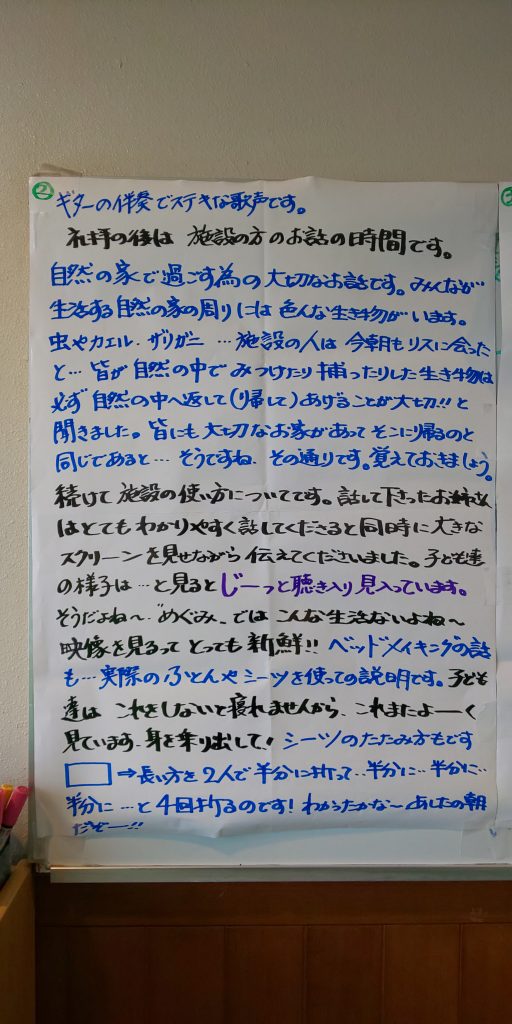 ②
ギターの伴奏でステキな歌声です。
礼拝の後は 施設の方のお話の時間です。
自然の家で過ごす為の大切なお話です。みんなが
生活する自然の家の周りには 色んな生き物がいます。
虫やカエル・ザリガニ …施設の人は 今朝もリスに会った
と… 皆が自然の中でみつけたり捕ったりした生き物は
必ず自然の中へ返して(帰して)あげることが大切!!と
聞きました。皆にも大切なお家があってそこに帰るのと
同じであると… そうですね、その通りです。覚えておきましょう。
続けて施設の使い方についてです。話して下さったお姉さん
はとてもわかりやすく話してくださると同時に大きな
スクリーンを見せながら伝えてくださいました。子ども達
の様子は…と見るとじーっと聴き入り見入っています。
そうだよね〜“めぐみ”では こんな生活ないよね〜
映像を見るって とっても新鮮!! ベッドメイキングの話
も…実際のふとんやシーツを使っての説明です。子ども
達は これをしないと寝れませんから、これまたよーく
見ています、身を乗り出して! シーツのたたみ方もです
⇒長い方を2人で半分に折って‥半分に‥半分に‥
半分に …と4回折るのです! わかったかな〜 あしたの朝
だぞー!!